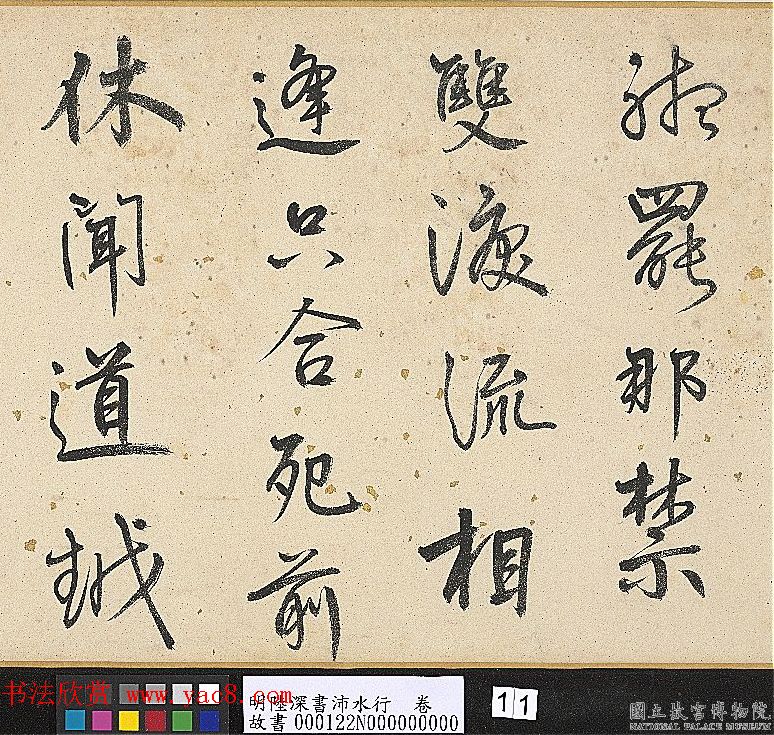 聽罷那禁
雙淚流相
逢只合死前
休聞道越
书法欣赏 www.yac8.com
明陸深書沛水行 卷
故書 000122N000000000
11
國立故宮博物院
NATIONAL PALACE MUSEUM